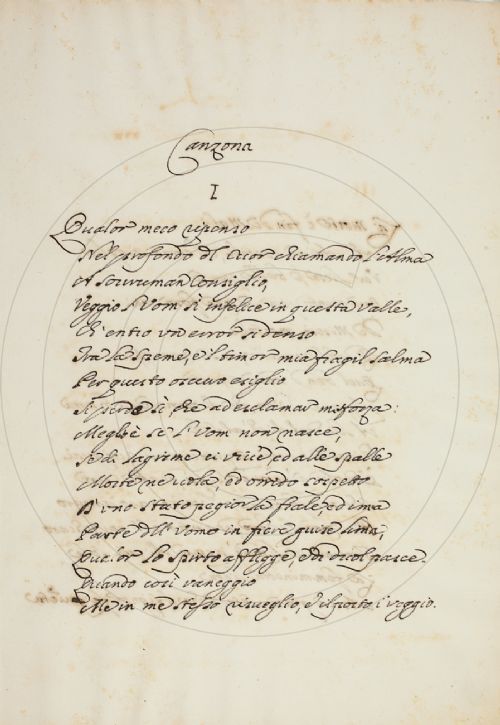 Canzona
I
Qualor meco ripenso
Nel profondo del Cuor chiamando l'Alma
A sovruman Consiglio,
Veggio l'Uom sì infelice in questa Valle,
Ch'entro un error sì denso
Tra la speme, e il timor mia fragil salma
Per questo oscuro esiglio
Si perde sì che ad esclamar mi sforza:
Meglio è se l'Uom non nasce,
Se di lagrime ei vive, ed alle spalle
Morte ne vola, ed orrido sospetto
D'uno stato peggior la frale, ed ima
Parte dell'Uomo in fiera guisa lima,
Qualor lo spirto afflegge, e di duol pasce.
Quando così vaneggio
Me in me stesso risveglio, e il porto i' veggio.